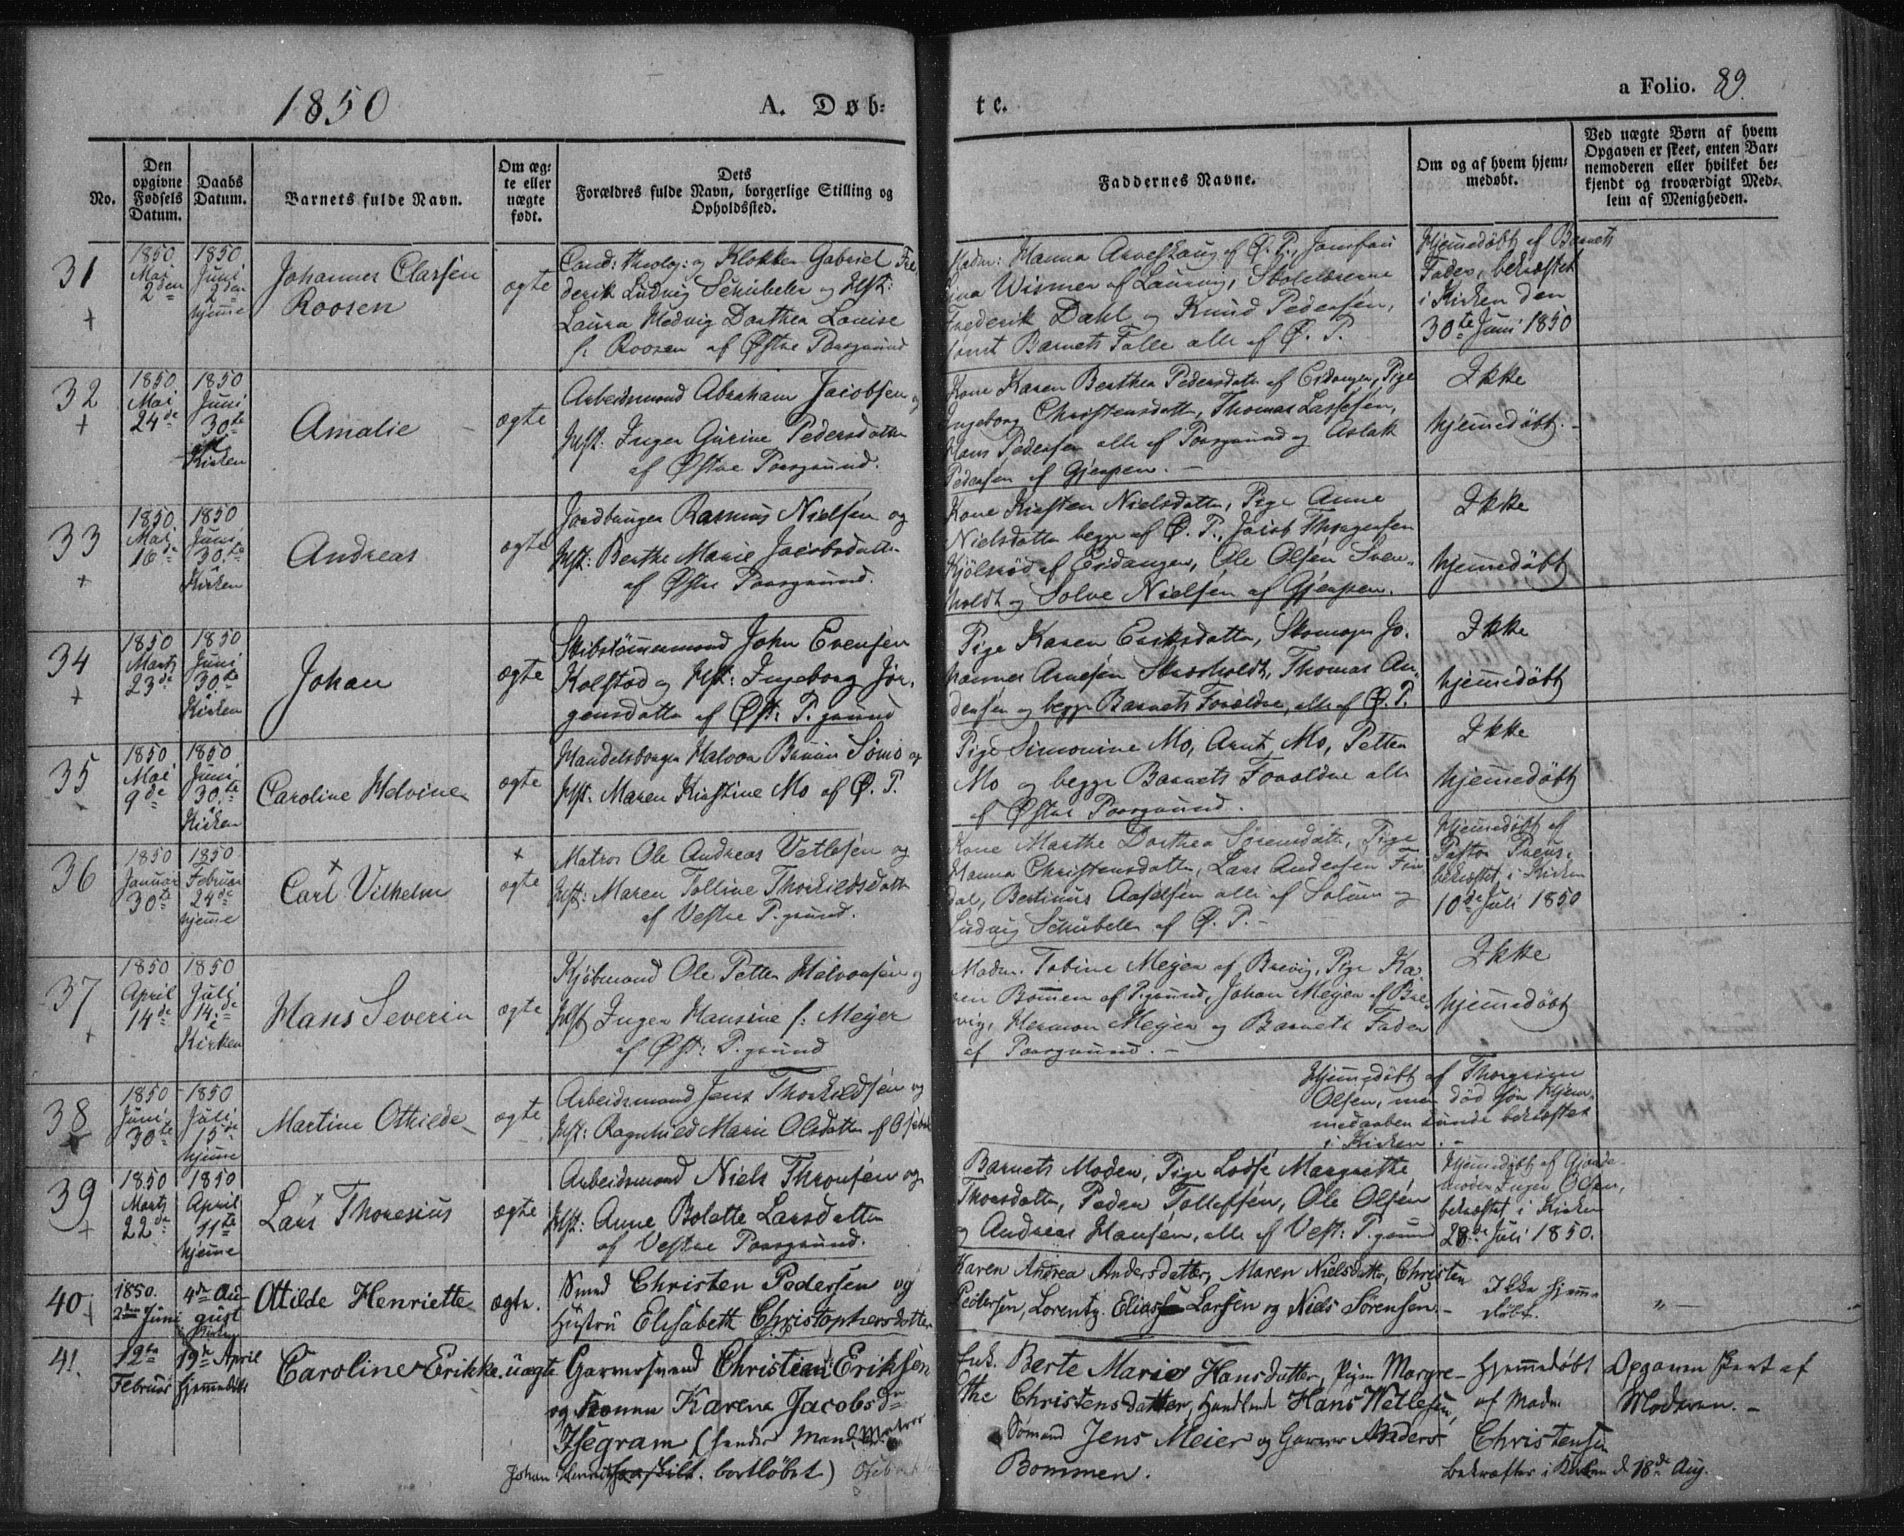 1850
A. Døb=
te.
a Folio. 89.
No.
Den opgivne Fødsels Datum.
Daabs Datum.
Barnets fulde Navn.
Om æg= te eller uægte født.
Dets Forældres fulde Navn, borgerlige Stilling og Opholdssted.
Faddernes Navne.
Om og af hvem hjem= medøbt.
Ved uægte Børn af hvem Opgaven er skeet, enten Bar= nemoderen eller hvilket be= kjendt og troværdigt Med= lem af Menigheden.
31
+
1850
Mai
2den
1850
Juni
2den
hjemme
Johannes Clasen
Roosen
ægte
Cand: theolog: og Klokker Gabriel Fre
derik Ludvig Schübeler og Hst:
Laura Hedvig Dorthea Louise
f: Roosen af Østre Porsgrund
Madm: Hanna Arveskoug af Ø. P., Jomfru
Wismer af Laurvig, Skolelærerne
Frederik Dahl og Knud Pedersen,
samt Barnets Fader alle af Ø. P.
Hjemmedøbt af Barnets
Fader, bekræftet
i Kirken den
30te Juni 1850
32
+
1850
Mai
24de
1850
Juni
30te
Kirken
Amalie
ægte
Arbeidsmand Abraham Jacobsen og
Hst. Inger Gurine Pedersdatter
af Østre Porsgrund.
Kone Karen Berthea Pedersdatter af Eidanger, Pige
Ingeborg Christensdatter, Thomas Lassesen,
Hans Pedersen alle af Porsgrund og Aslak
Pedersen af Gjerpen.
Ikke
hjemmedøbt.
33
+
1850
Mai
16de
1850
Juni
30te
i
Kirken
Andreas
ægte
Jordbruger Rasmus Nielsen og
Hst: Berthe Marie Jacobsdatter
af Østre Porsgrund.
Kone Kirsten Nielsdatter, Pige Anne
Nielsdatter begge af Ø. P., Jacob Thorgersen
Kjølnæs af Eidanger, Ole Olsen Sven-
holdt og Solve Nielsen af Gjerpen.
Ikke
hjemmedøbt
34
+
1850
Marts
23de
1850
Juni
30te
i
Kirken
Johan
ægte
Skibstømmermand John Evensen
Kolstad og Hst: Ingeborg Jør-
gensdatter af Øst: P.grund
Pige Karen Eriksdatter, Skomager Jo-
hannes Arnesen, Thomas An-
dersen og begge Barnets Forældre, alle af Ø. P.
Ikke
hjemmedøbt
35
1850
Mai
9de
1850
Juni
30te
i
Kirken
Caroline Helvine
ægte
Handelsborger Halvor Bruun Somo og
Hst: Maren Kirstine Mo af Ø. P.
Pige Simonine Mo, Arnt Mo, Petter
Mo og begge Barnets Forældre alle
af Østre Porsgrund.
Ikke
hjemmedøbt
36
1850
Januar
30te
1850
Februar
24de
hjemme
+
Carl Vilhelm
+
ægte
Matros Ole Andreas Vetlesen og
Hst: Maren Tolline Thorkildsdatter
af Vestre P.grund.
Kone Marthe Dorthea Sørensdatter, Pige
Hanna Christensdatter, Lars Andersen
Bertinius alle af Solum og
Ludvig Schübeler af Ø. P.
Hjemmedøbt af
Pastor Preus,
bekræftet i Kirken
10de Juli 1850
37
+
1850
April
14de
1850
Juli
14de
i
Kirken
Hans Severin
ægte
Kjøbmand Ole Petter Halvorsen og
Hst Inger Hansine f: Meyer
af Øst: P.grund
Madm. Tobine Meyer af Brevig, Pige Ka-
ren Bommen af P.grund, Johan Meyer af Bre-
vig, Herman Meyer og Barnets Fader
af Porsgrund.
Ikke
hjemmedøbt
38
1850
Juni
30te
1850
Juli
15de
hjemme
Martine Othilde
ægte
Arbeidsmand Jens Thorkildsen og
Hst: Ragnhild Marie Olsdatter af
Hjemmedøbt af Thorgrim
Olsen, men død før Hjem-
medaaben kunde bekræftes
i Kirken.
39
+
1850
Marts
22de
1850
April
11te
hjemme
Lars Thoresius
ægte
Arbeidsmand Niels Thronsen og
Hst: Anne Bolette Larsdatter
af Vestre Porsgrund.
Barnets Moder, Pige Lovise Margrethe
Thorsdatter, Peder Tollefsen, Ole Olsen
og Andreas Hansen, alle af Vest: P.grund
Hjemmedøbt af Gjorde-
moder Inger Olsen,
bekræftet i Kirken
28de Juli 1850.
40
+
1850.
2den Juni
4de Au-
gust
i Kirken
Ottilde Henriette
ægte.
Smed Christen Pedersen og
Hustru Elisabeth Christophersdatter
Karen Andrea Andersdatter, Maren Nielsdatter, Christen
Pedersen, Lorentz Elias Larsen og Niels Sørensen
Ikke hjemme-
døbt.
41
12te
Februar
19de April
hjemmedøbt
Caroline Erikke
uægte
Garversvend Christian Eriksen
og Konen Karena Jacobsdr
Isegram (hendes Mand Matros
Johan Henrik bortløbet)
Enk. Berte Marie Hansdatter, Pigen Margre-
the Christensdatter, Handlende Hans Wetlesen,
Sømand Jens Meier og Garver Anders
Bommen.
Hjemmedøbt
af Madm
Christensen
bekræftet i Kirken d 18de Aug.
Opgaven skeet af
Moderen.